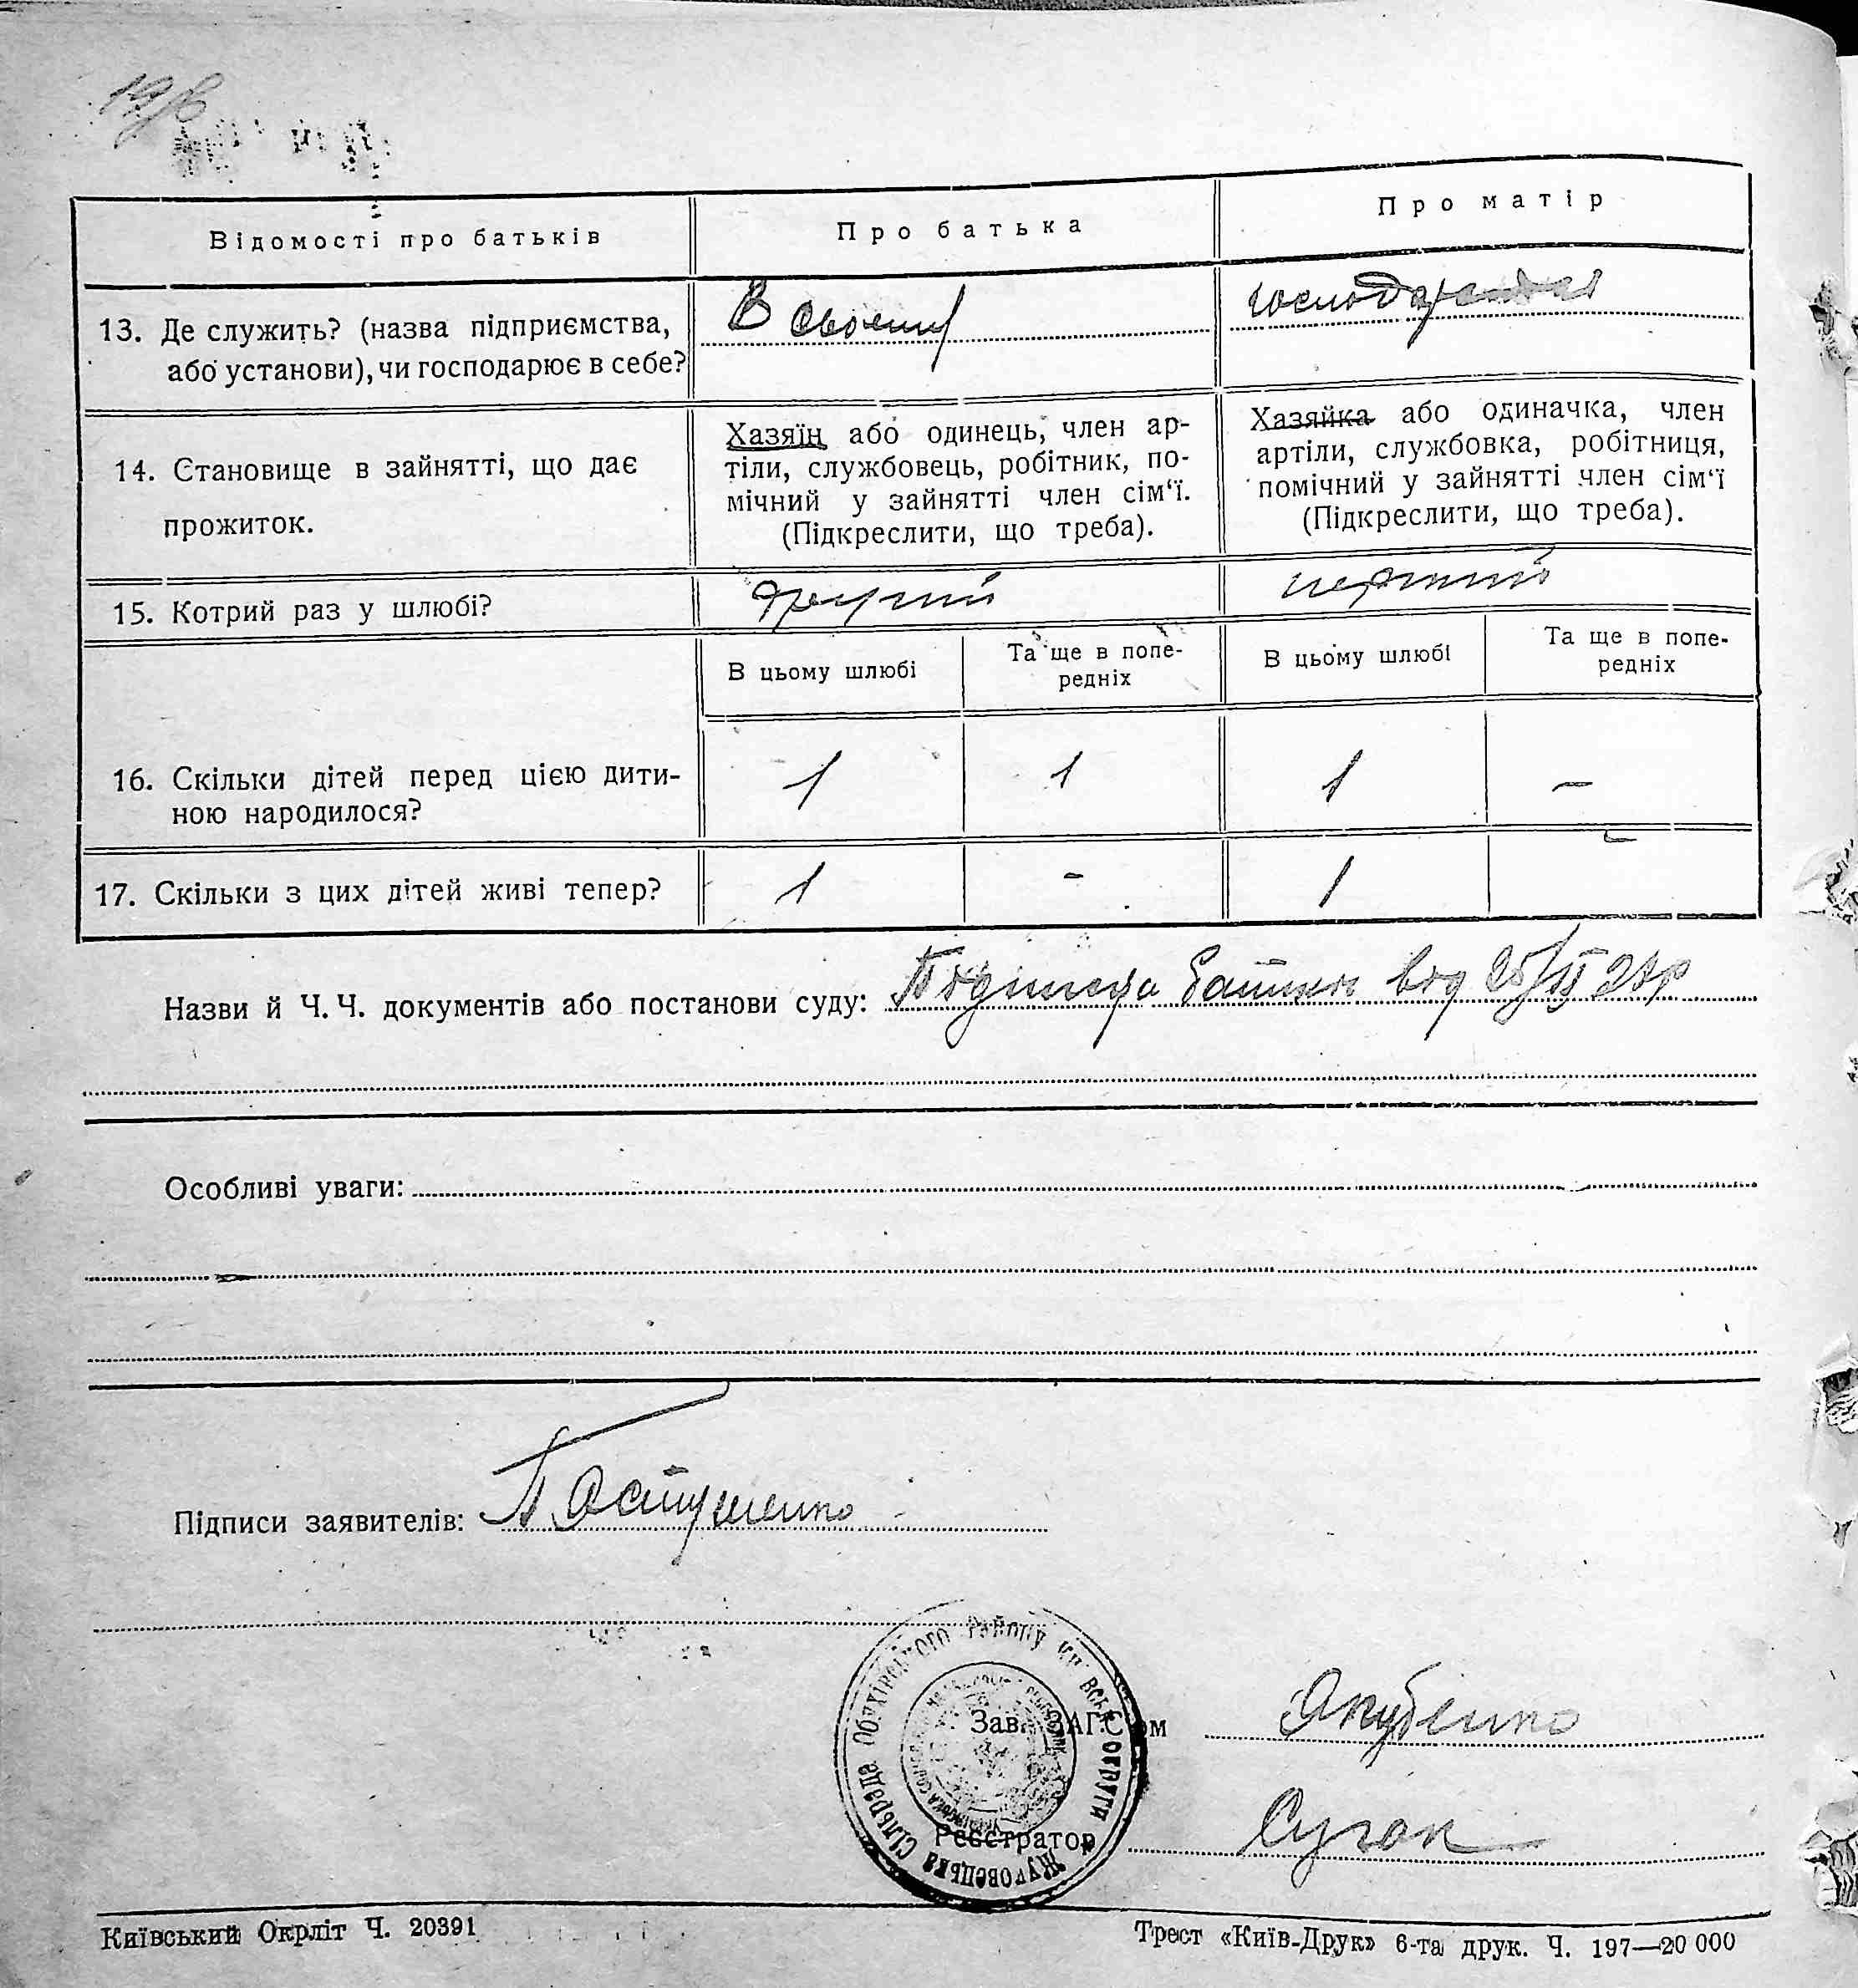 Відомості про батьків
Про батька
Про матір
13. Де служить? (назва підприємства,
або установи), чи господарює в себе?
В своему
14. Становище в зайнятті, що дає
прожиток.
Хазяїн або одинець, член ар-
тіли, службовець, робітник, по-
мічний у зайнятті член сім‘ї.
(Підкреслити, що треба).
Хазяйка або одиначка, член
артіли, службовка, робітниця,
помічний у зайнятті член сім‘ї
(Підкреслити, що треба).
15. Котрий раз у шлюбі?
другий
перший
В цьому шлюбі
Та ще в попе-
редніх
В цьому шлюбі
Та ще в попе-
редніх
16. Скільки дітей перед цією дити-
ною народилося?
1
1
1
–
17. Скільки з цих дітей живі тепер?
1
-
1
Назви й Ч. Ч. документів або постанови суду:
Особливі уваги:
Підписи заявителів:
Сільрада Обухівського району Київської округи
Зав. ЗАГС'ом
Якубенко
Реєстратор
Сугак
Київський Окрліт Ч. 20391
Трест «Київ-Друк» 6-та друк. Ч. 197—20 000